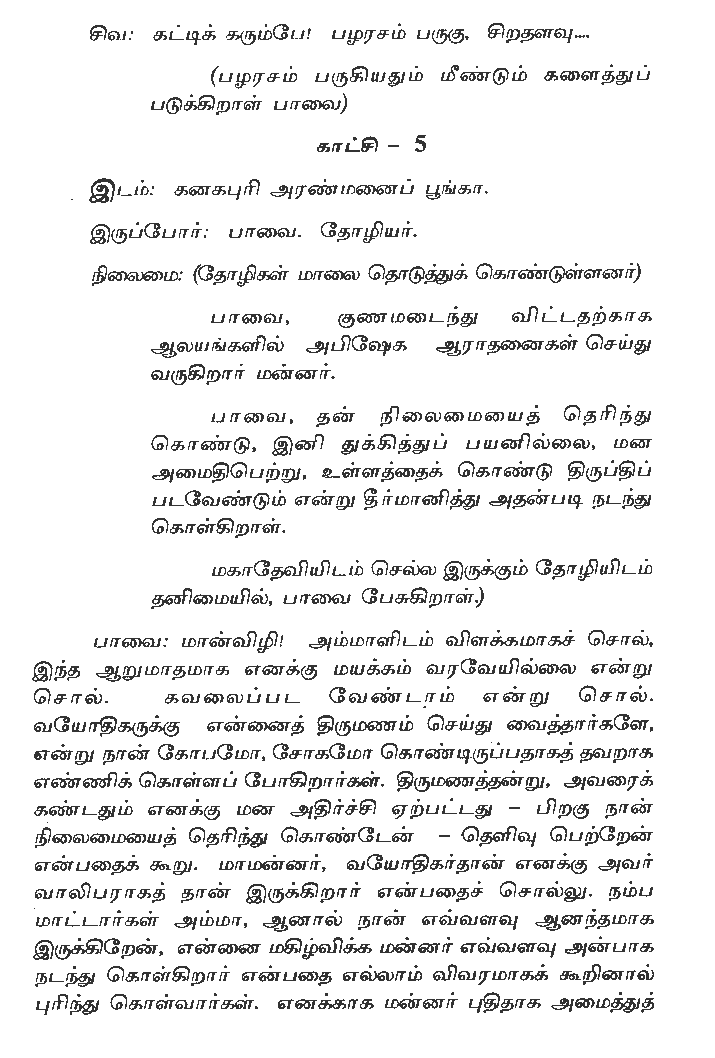 சிவ: கட்டிக் கரும்பே! பழரசம் பருகு, சிறதளவு....
(பழரசம் பருகியதும் மீண்டும் களைத்துப்
படுக்கிறாள் பாவை)
காட்சி – 5
இடம்: கனகபுரி அரண்மனைப் பூங்கா.
இருப்போர்: பாவை. தோழியர்.
நிலைமை: (தோழிகள் மாலை தொடுத்துக் கொண்டுள்ளனர்)
பாவை, குணமடைந்து விட்டதற்காக
ஆலயங்களில் அபிஷேக ஆராதனைகள் செய்து
வருகிறார் மன்னர்.
பாவை, தன் நிலைமையைத் தெரிந்து
கொண்டு, இனி துக்கித்துப் பயனில்லை, மன
அமைதிபெற்று, உள்ளத்தைக் கொண்டு திருப்திப்
படவேண்டும் என்று தீர்மானித்து அதன்படி நடந்து
கொள்கிறாள்.
மகாதேவியிடம் செல்ல இருக்கும் தோழியிடம்
தனிமையில், பாவை பேசுகிறாள்.)
பாவை: மான்விழி! அம்மாளிடம் விளக்கமாகச் சொல்,
இந்த ஆறுமாதமாக எனக்கு மயக்கம் வரவேயில்லை என்று
சொல். கவலைப்பட வேண்டாம் என்று சொல்.
வயோதிகருக்கு என்னைத் திருமணம் செய்து வைத்தார்களே,
என்று நான் கோபமோ, சோகமோ கொண்டிருப்பதாகத் தவறாக
எண்ணிக் கொள்ளப் போகிறார்கள். திருமணத்தன்று, அவரைக்
கண்டதும் எனக்கு மன அதிர்ச்சி ஏற்பட்டது – பிறகு நான்
நிலைமையைத் தெரிந்து கொண்டேன் – தெளிவு பெற்றேன்
என்பதைக் கூறு. மாமன்னர், வயோதிகர்தான் எனக்கு அவர்
வாலிபராகத் தான் இருக்கிறார் என்பதைச் சொல்லு. நம்ப
மாட்டார்கள் அம்மா, ஆனால் நான் எவ்வளவு ஆனந்தமாக
இருக்கிறேன், என்னை மகிழ்விக்க மன்னர் எவ்வளவு அன்பாக
நடந்து கொள்கிறார் என்பதை எல்லாம் விவரமாகக் கூறினால்
புரிந்து கொள்வார்கள். எனக்காக மன்னர் புதிதாக அமைத்துத்